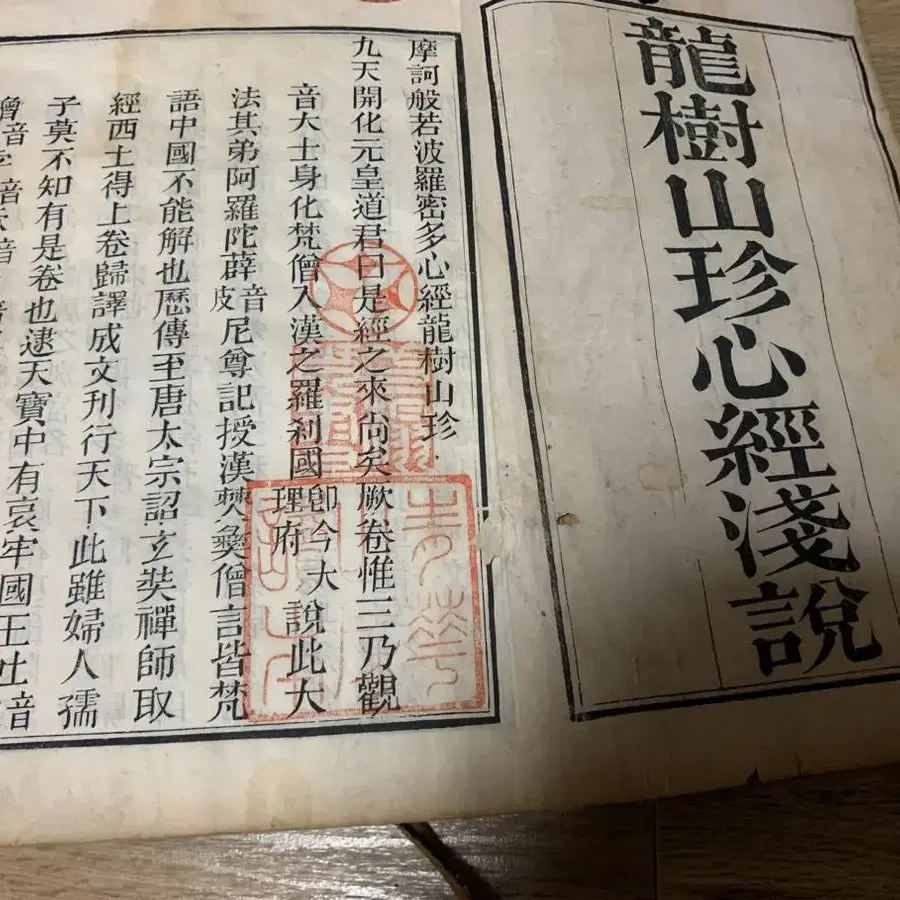 龍樹山珍心經淺說
摩訶般若波羅密多心經龍樹山珍
九天開化元皇道君曰是經之來尚矣厥卷惟三乃觀
音大士身化梵僧入漢之羅刹國卽今大理府說此大
法其弟阿羅陀薜音皮尼尊記授漢彝僧言皆梵
語中國不能解也歷傳至唐太宗詔玄奘禪師取
經西土得上卷歸譯成文刊行天下此雖婦人孺
子莫不知有是卷也逮天寶中有哀牢國王吐音